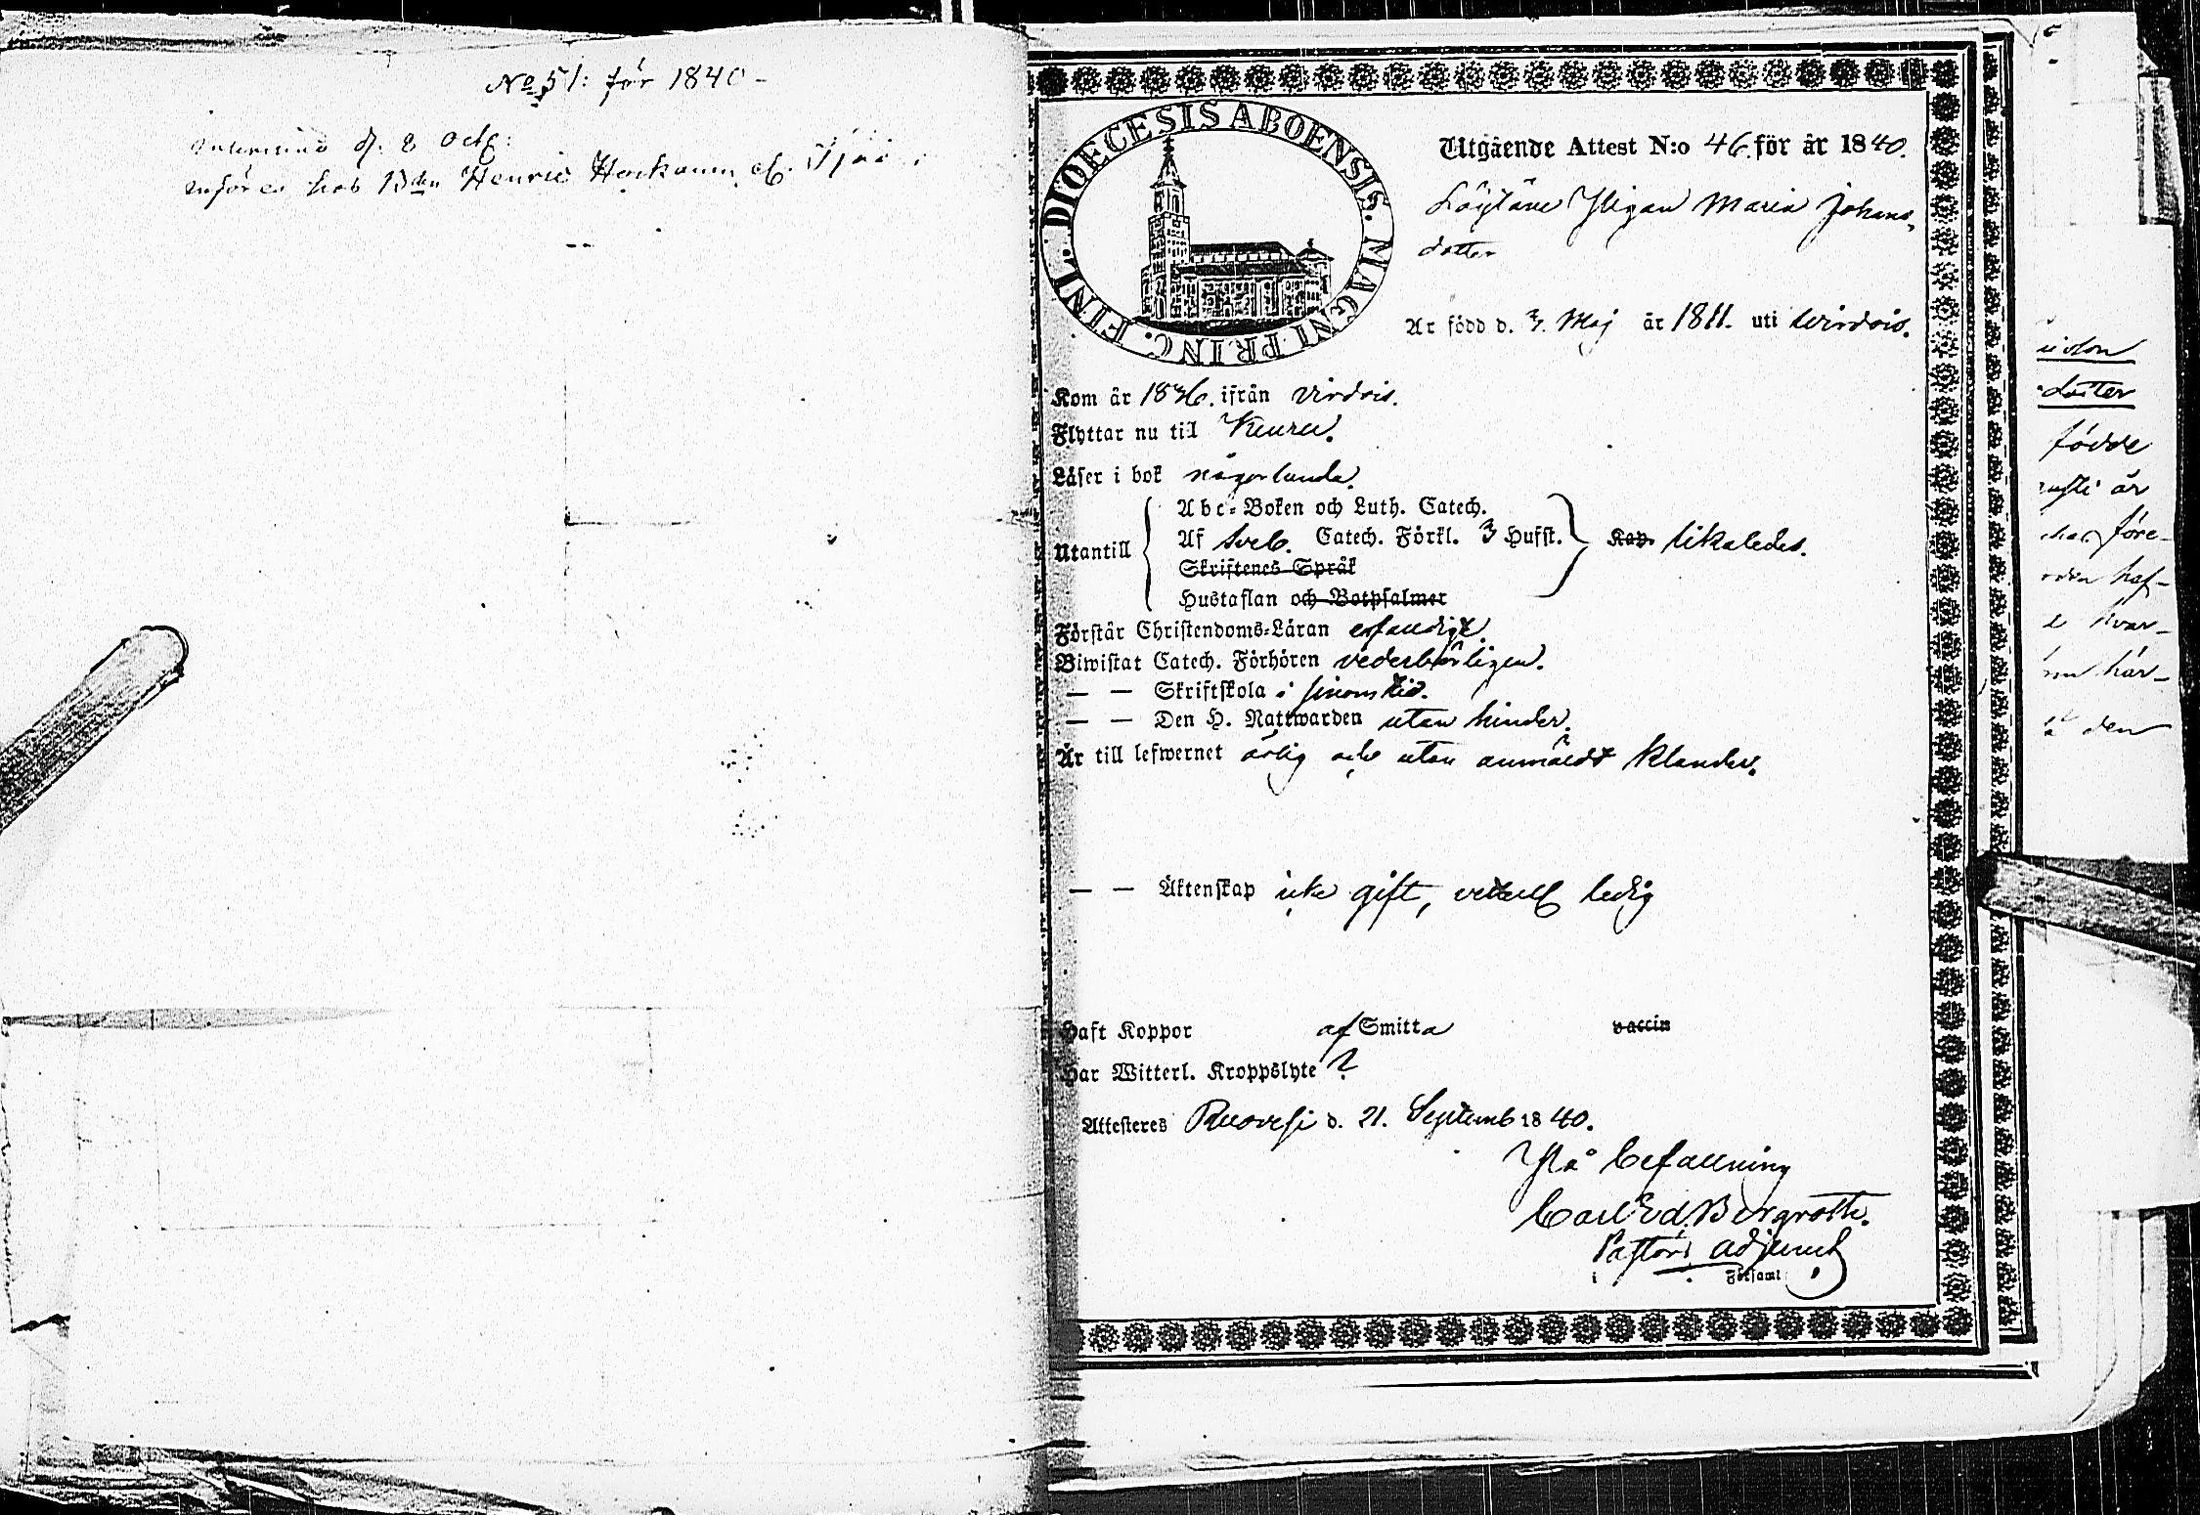 No 51: för 1840 -
d. 2 Oct:
införes hos Bden Henric
DIOECESIS ABOENSIS. MAGNI PRINC. FINL.
Utgående Attest N:o 46. för år 1840.
Pigan Maria Johans
dotter
Är född d. 3. Maj år 1811. uti Wirdois.
Kom år 1836. ifrån Virdois.
Flyttar nu till Keuru.
Läser i bok någorlunda.
Abc-Boken och Luth. Catech.
Utantill Af Sveb. Catech. Förkl. 3 Hufst. Kap. likaledes.
Skriftenes Språk
Hustaflan och Botpsalmer
Förstår Christendoms-Läran erforderligt.
Biwistat Catech. Förhören vederbörligen.
— — Skriftskola i sinom tid.
— — Den H. Nattwarden utan hinder.
Är till lefwernet ärlig och utan anmäldt klander.
— — Äktenskap icke gift, ledig
Haft Koppor af Smitta vaccin
Har Witterl. Kroppslyte ?
Attesteres Ruovesi d. 21. Septemb 1840.
På befallning
Carl Ed. Bergroth.
Pastors adjunct
i Församl.
dotter
födde
är
före-
haf-
qvar-
här-
den